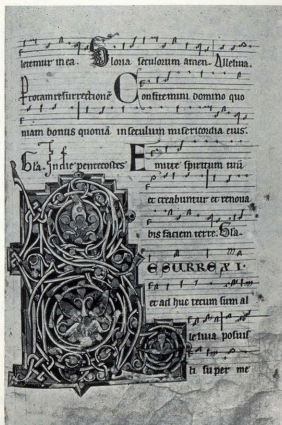 letemur in ea. Gloria seculorum amen. Alleluia.
Prota m resurrectionē Confitemini domino quo
niam bonus quoniā in seculum misericordia eius.
Gl'a. In die pentecostes Emitte spiritum tuū
et creabuntur et renoua
bis faciem terre. Gl'a.
ESURREXI.
et ad huc tecum sum al
leluia posuis
ti super me